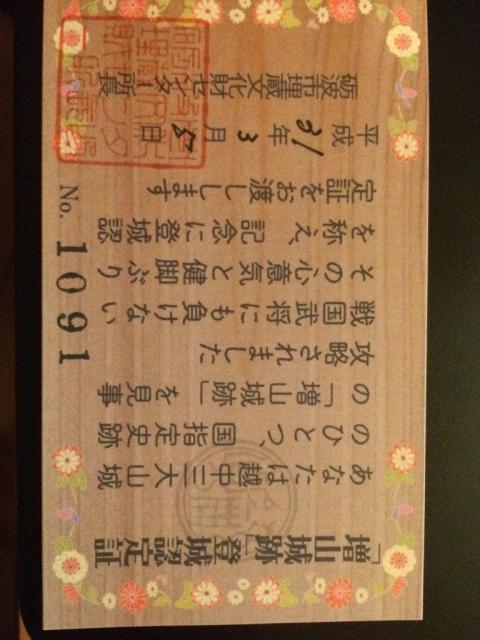 「増山城跡」登城認定証
あなたは越中三大山城
のひとつ、国指定史跡
の「増山城跡」を見事
攻略されました
戦国武将にも負けない
その心意気と健脚ぶり
を称え、記念に登城認
定証をお渡しします
平成31年3月 日
砺波市埋蔵文化財センター所長
No. 1091